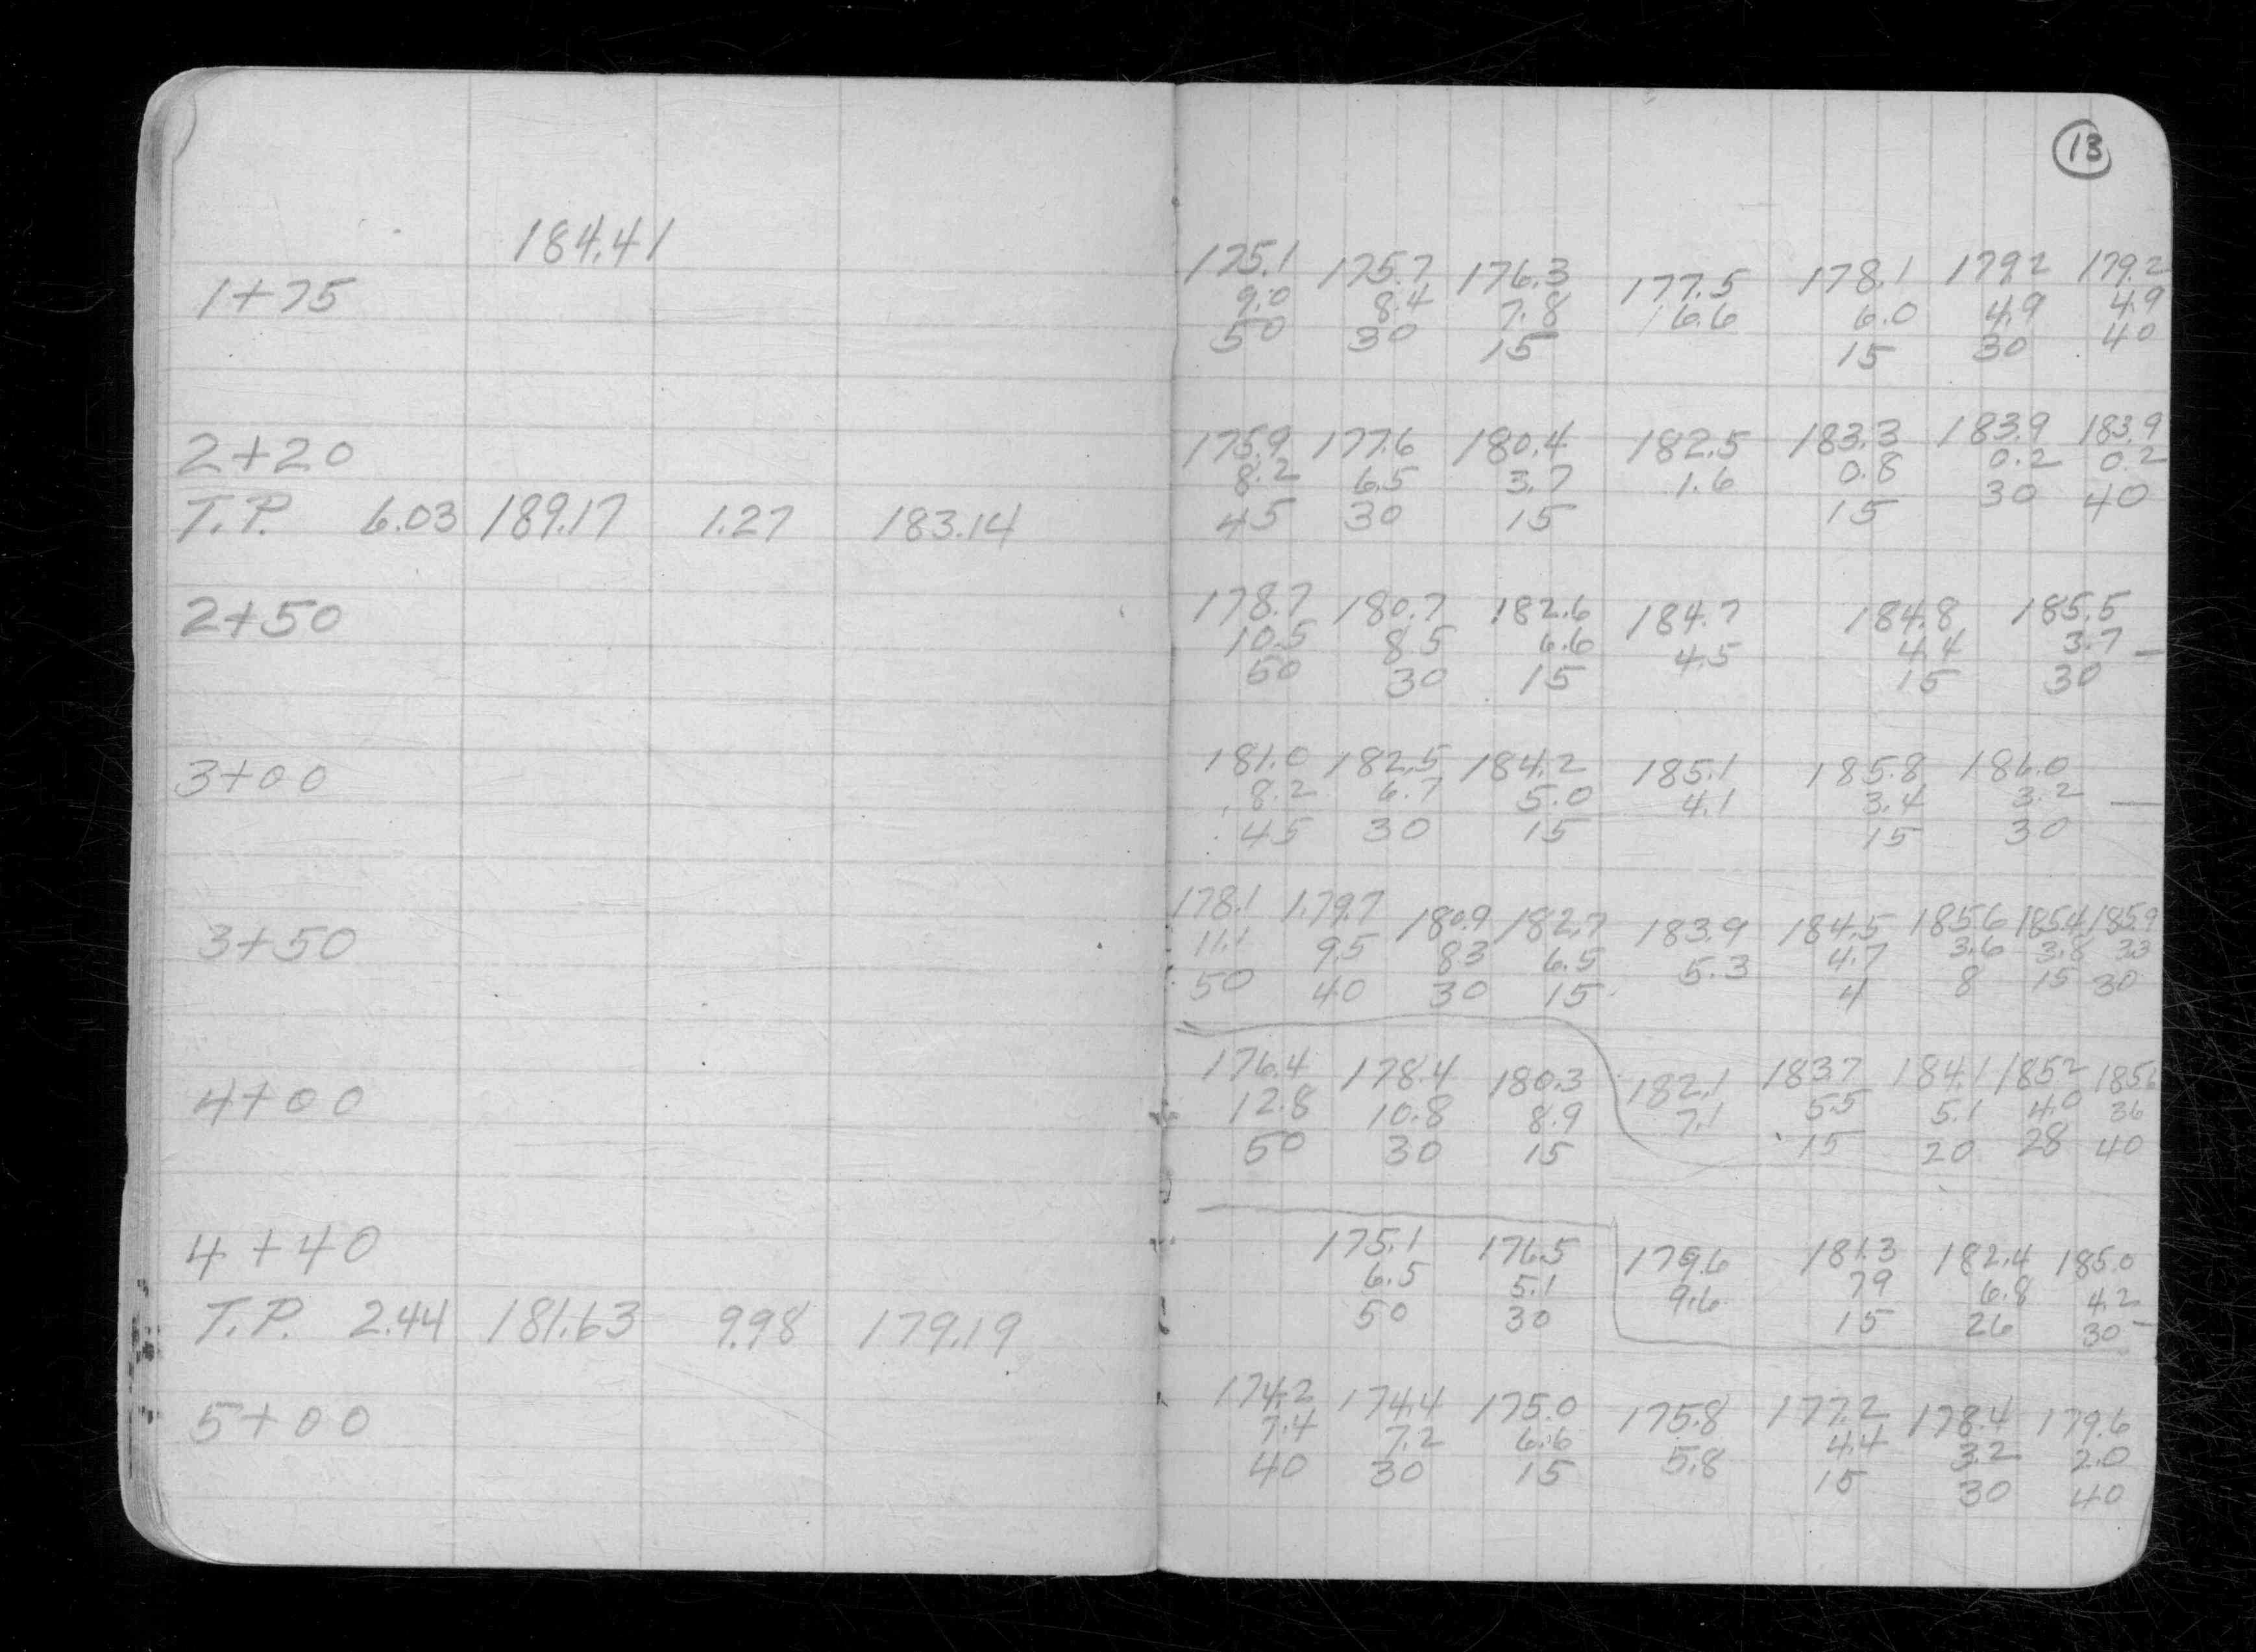 13
184.41
1+75
175.1 175.7 176.3 177.5 178.1 179.2 179.2
9.0 8.4 7.8 6.6 6.0 4.9 4.9
50 30 15 15 30 40
2+20
175.9 177.6 180.4 182.5 183.3 183.9 183.9
8.2 6.5 3.7 1.6 0.8 0.2 0.2
45 30 15 15 30 40
T.P. 6.03 189.17 1.27 183.14
2+50
178.7 180.7 182.6 184.7 184.8 185.5
10.5 8.5 6.6 4.5 4.4 3.7
50 30 15 15 30
3+00
181.0 182.5 184.2 185.1 185.8 186.0
8.2 6.7 5.0 4.1 3.4 3.2
45 30 15 15 30
3+50
178.1 179.7 180.9 182.7 183.9 184.5 185.6 185.4 185.9
11.1 9.5 8.3 6.5 5.3 4.7 3.6 3.8 3.3
50 40 30 15 4 8 15 30
4+00
176.4 178.4 180.3 182.1 183.7 184.1 185.2 185.6
12.8 10.8 8.9 7.1 5.5 5.1 4.0 3.6
50 30 15 15 20 28 40
4+40
175.1 176.5 179.6 181.3 182.4 185.0
6.5 5.1 9.6 7.9 6.8 4.2
50 30 15 26 30
T.P. 2.44 181.63 9.98 179.19
5+00
174.2 174.4 175.0 175.8 177.2 178.4 179.6
7.4 7.2 6.6 5.8 4.4 3.2 2.0
40 30 15 15 30 40